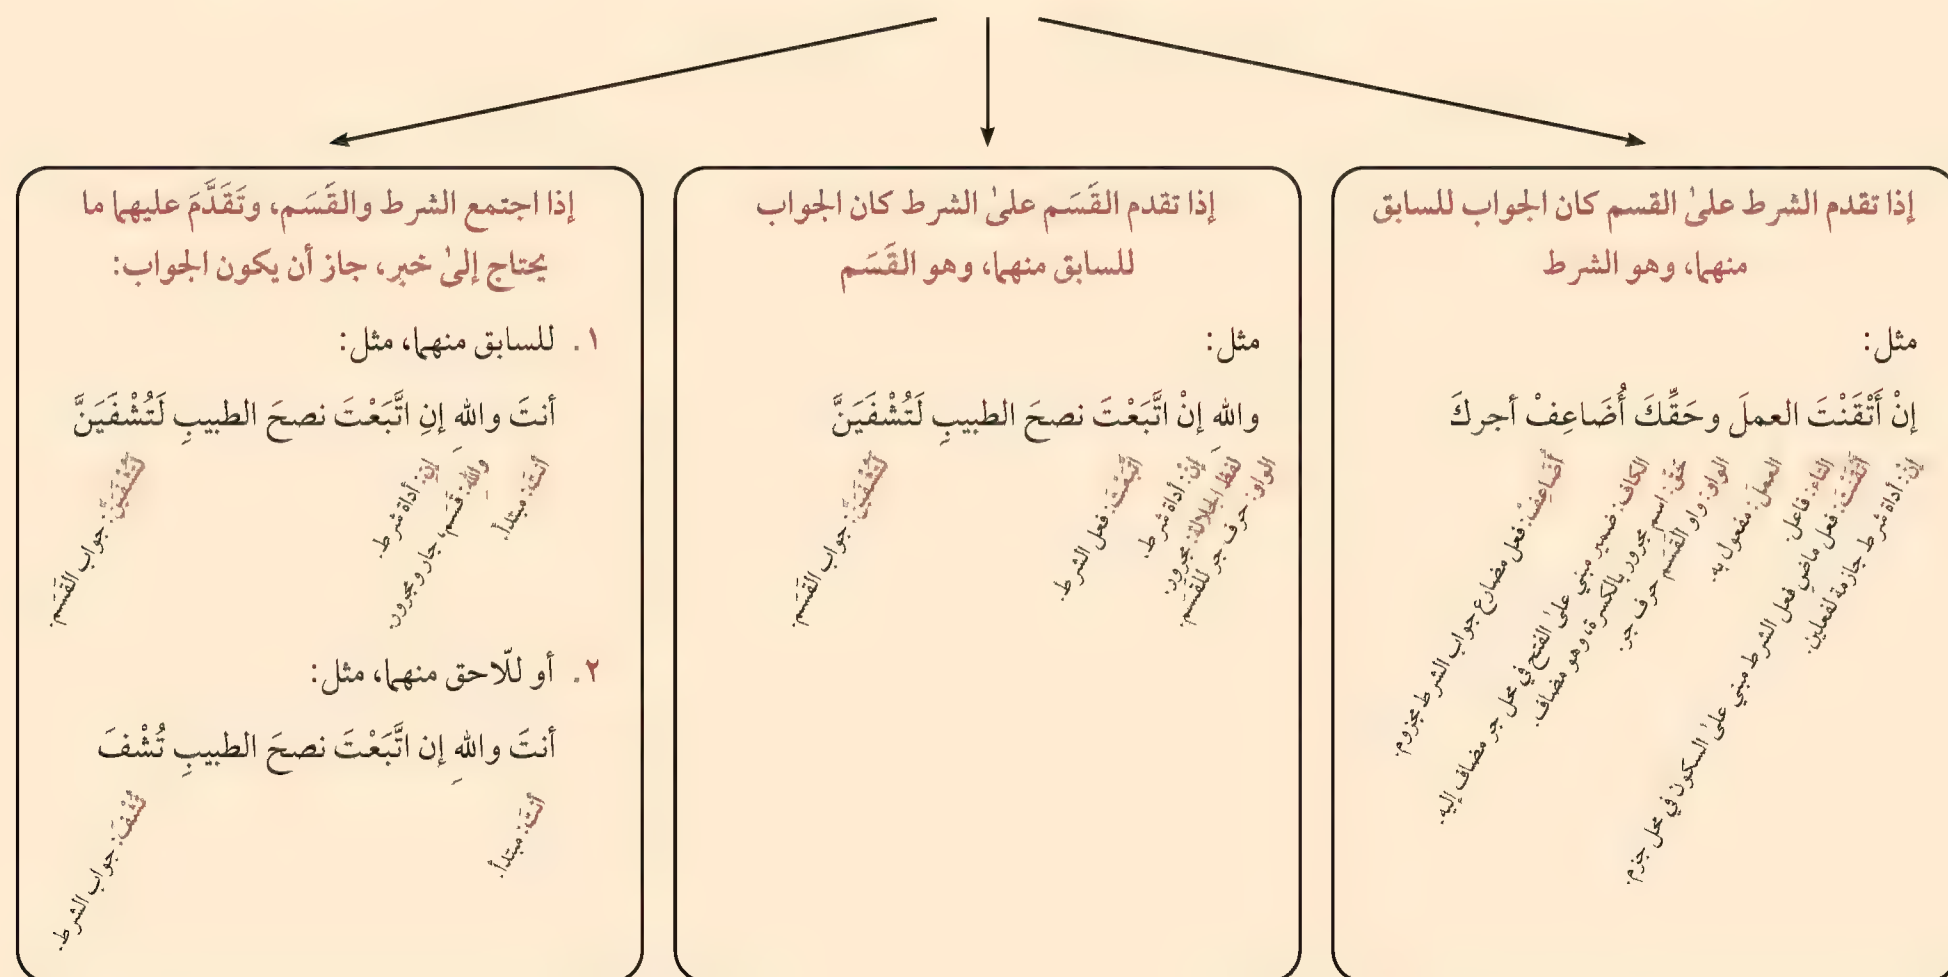 إذا تقدم الشرط علىٰ القسم كان الجواب للسابق
منهما، وهو الشرط
مثل:
إنْ أَتْقَنْتَ العملَ وحَقِّكَ أُضَاعِفْ أجركَ
إنْ: أداة شرط جازمة لفعلين.
أَتْقَنْتَ: فعل ماضٍ فعل الشرط مبني علىٰ السكون في محل جزم.
التاء: فاعل.
العملَ: مفعول به.
الواو: واو القَسَم حرف جر.
حَقِّ: اسم مجرور بالكسرة، وهو مضاف.
الكاف: ضمير مبني علىٰ الفتح في محل جر مضاف إليه.
أُضَاعِفْ: فعل مضارع جواب الشرط مجزوم.
إذا تقدم القَسَم علىٰ الشرط كان الجواب
للسابق منهما، وهو القَسَم
مثل:
واللهِ إنْ اتَّبَعْتَ نصحَ الطبيبِ لَتُشْفَيَنَّ
الواو: حرف جر للقَسَم.
لفظ الجلالة: مجرور.
إنْ: أداة شرط.
اتَّبَعْتَ: فعل الشرط.
لَتُشْفَيَنَّ: جواب القَسَم.
إذا اجتمع الشرط والقَسَم، وتَقَدَّمَ عليهما ما
يحتاج إلىٰ خبر، جاز أن يكون الجواب:
١. للسابق منهما، مثل:
أنتَ واللهِ إنِ اتَّبَعْتَ نصحَ الطبيبِ لَتُشْفَيَنَّ
أنتَ: مبتدأ.
واللهِ: قَسَم، جار ومجرور.
إنِ: أداة شرط.
لَتُشْفَيَنَّ: جواب القَسَم.
٢. أو للّاحق منهما، مثل:
أنتَ واللهِ إن اتَّبَعْتَ نصحَ الطبيبِ تُشْفَ
أنتَ: مبتدأ.
تُشْفَ: جواب الشرط.